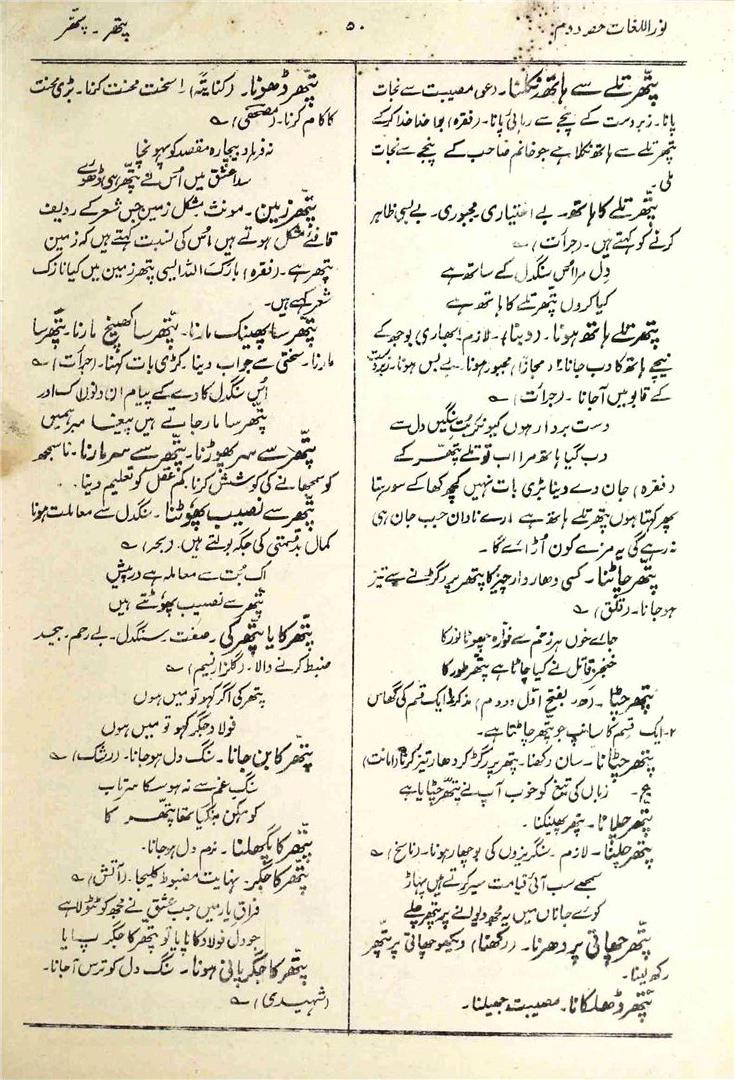 نور اللغات حصہ دوم
۵۰
پتھر ۔ پتھر
پتھر تلے سے ہاتھ نکلنا۔ (عو) مصیبت سے نجات
پانا۔ زبردست کے پنجے سے رہائی پانا۔ (فقرہ) بوا خدا خدا کر کے
پتھر تلے سے ہاتھ نکلا ہے جو خانم صاحب کے پنجے سے نجات
ملی۔
پتھر تلے کا ہاتھ۔ بے اختیاری مجبوری۔ بے بسی ظاہر
کرنے کو کہتے ہیں۔ (جرأت) ؎
دل مرا اس سنگدل کے ساتھ ہے
کیا کروں پتھر تلے کا ہاتھ ہے
پتھر تلے ہاتھ ہونا۔ (دبنا) ۔ لازم۔ ا(بھاری) بوجھ کے
نیچے ہاتھ کا دب جانا۔ ۲ (مجازاً) مجبور ہونا۔ بے بس ہونا۔ زبردست
کے قابو میں آجانا ۔ (جرأت) ؎
دست بردار ہوں کیونکر بت سنگیں دل سے
دب گیا ہاتھ مرا اب تو تلے پتھر کے
(فقرہ) جان دے دینا بڑی بات نہیں کچھ کھا کے سو رہتا
پھر کہتا ہوں پتھر تلے ہاتھ ہے ارے نادان جب جان ہی
نہ رہے گی یہ مزے کون اُڑائے گا۔
پتھر چاٹنا۔ کسی دھار دار چیز کا پتھر پر رگڑنے سے تیز
ہوجانا۔ (قلق) ؎
جائے خوں ہر زخم سے فوارہ چھوٹا نور کا
خنجر قاتل نے کیا چاٹا ہے پتھر طور کا
پتھر چٹا ۔ (ھ۔ بفتح اول و دوم) مذکر۔ ا ایک قسم کی گھاس
۲۔ ایک قسم کا سانپ جو پتھر چاٹتا ہے۔
پتھر چٹانا ۔ سان رکھنا۔ پتھر پر رگڑ کر دھار تیز کرنا (امانت)
ع۔ زباں کی تیغ کو خوب آپ نے پتھر چٹایا ہے
پتھر چلانا ۔ پتھر پھینکنا ۔
پتھر چلنا ۔ لازم ۔ سنگریزوں کی بوچھار ہونا۔ (ناسخ) ؎
سمجھے سب آئی قیامت سیر کرتے ہیں پہاڑ
کوئے جاناں میں یہ مجھ دیوانے پر پتھر چلے
پتھر چھاتی پر دھرنا۔ (رکھنا) دیکھو چھاتی پر پتھر
رکھ لینا۔
پتھر ڈھلکانا۔ مصیبت جھیلنا۔
پتھر ڈھونا۔ (کنایۃً) ا سخت محنت کرنا۔ بڑی محنت
کا کام کرنا۔ (مصحفی) ؎
نہ فرہاد بیچارہ مقصد کو پہونچا
سدا عشق میں اُس نے پتھر ہی ڈھوئے
پتھر زمین۔ مونث۔ مشکل زمین جس شعر کے ردیف
قافئے مشکل ہوتے ہیں اُس کی نسبت کہتے ہیں کہ زمین
پتھر ہے۔ (فقرہ) بارک اللہ ایسی پتھر زمین میں کیا نازک
شعر کہے ہیں۔
پتھر سا پھینک مارنا۔ پتھر سا کھینچ مارنا۔ پتھر سا
مارنا۔ سختی سے جواب دینا۔ کڑی بات کہنا۔ (جرأت) ؎
اُس سنگدل کا دے کے پیام ان دنوں لاک اور
پتھر سا مار جاتے ہیں پیغامبر ہمیں
پتھر سے سر پھوڑنا۔ پتھر سے سر مارنا۔ ناسمجھ
کو سمجھانے کی کوشش کرنا۔ کم عقل کو تعلیم دینا۔
پتھر سے نصیب پھوٹنا ۔ سنگدل سے معاملت ہونا
کمال بدقسمتی کی جگہ بولتے ہیں۔ (بحر) ؎
اک بُت سے معاملہ ہے درپیش
پتھر سے نصیب پھوٹتے ہیں
پتھر کا یا پتھر کی ۔ صفت ۔ سنگدل۔ بے رحم۔ بیحد
ضبط کرنے والا۔ (گلزار نسیم) ؎
پتھر کی اگر کہو تو میں ہوں
فولاد جگر کہو تو میں ہوں
پتھر کا بن جانا۔ سنگ دل ہوجانا۔ (رشک) ؎
سنگ غم سے نہ ہو سکا سرتاب
کوہکن بن گیا تھا پتھر کا
پتھر کا پگھلنا ۔ نرم دل ہوجانا۔
پتھر کا جگر۔ نہایت مضبوط کلیجا۔ (آتش) ؎
فراق یار میں جب عشق نے مجھ کو ٹٹولا ہے
جو دل فولاد کا پایا تو پتھر کا جگر پایا
پتھر کا جگر پانی ہونا۔ سنگ دل کو ترس آجانا۔
(شہیدی) ؎